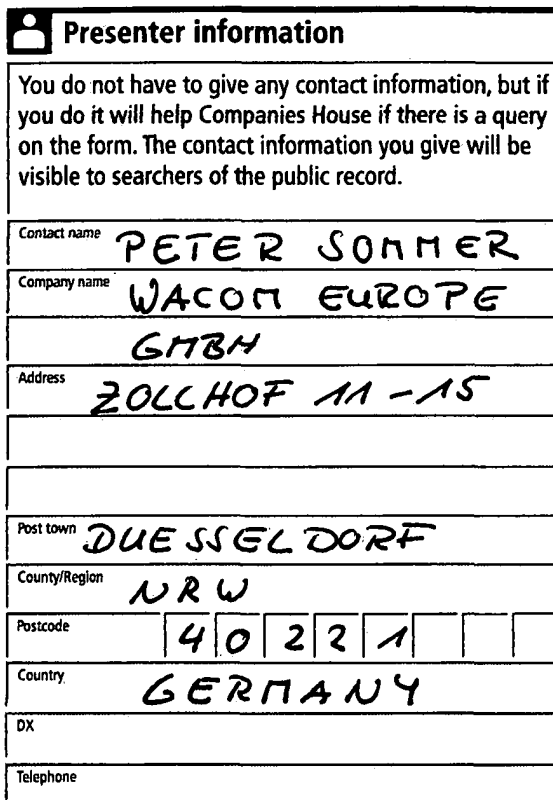 Presenter information
You do not have to give any contact information, but if
you do it will help Companies House if there is a query
on the form. The contact information you give will be
visible to searchers of the public record.
Contact name PETER SOMMER
Company name WACOM EUROPE
GMBH
Address ZOLLHOF 11-15
Post town DUESSELDORF
County/Region NRW
Postcode 40221
Country GERMANY
DX
Telephone